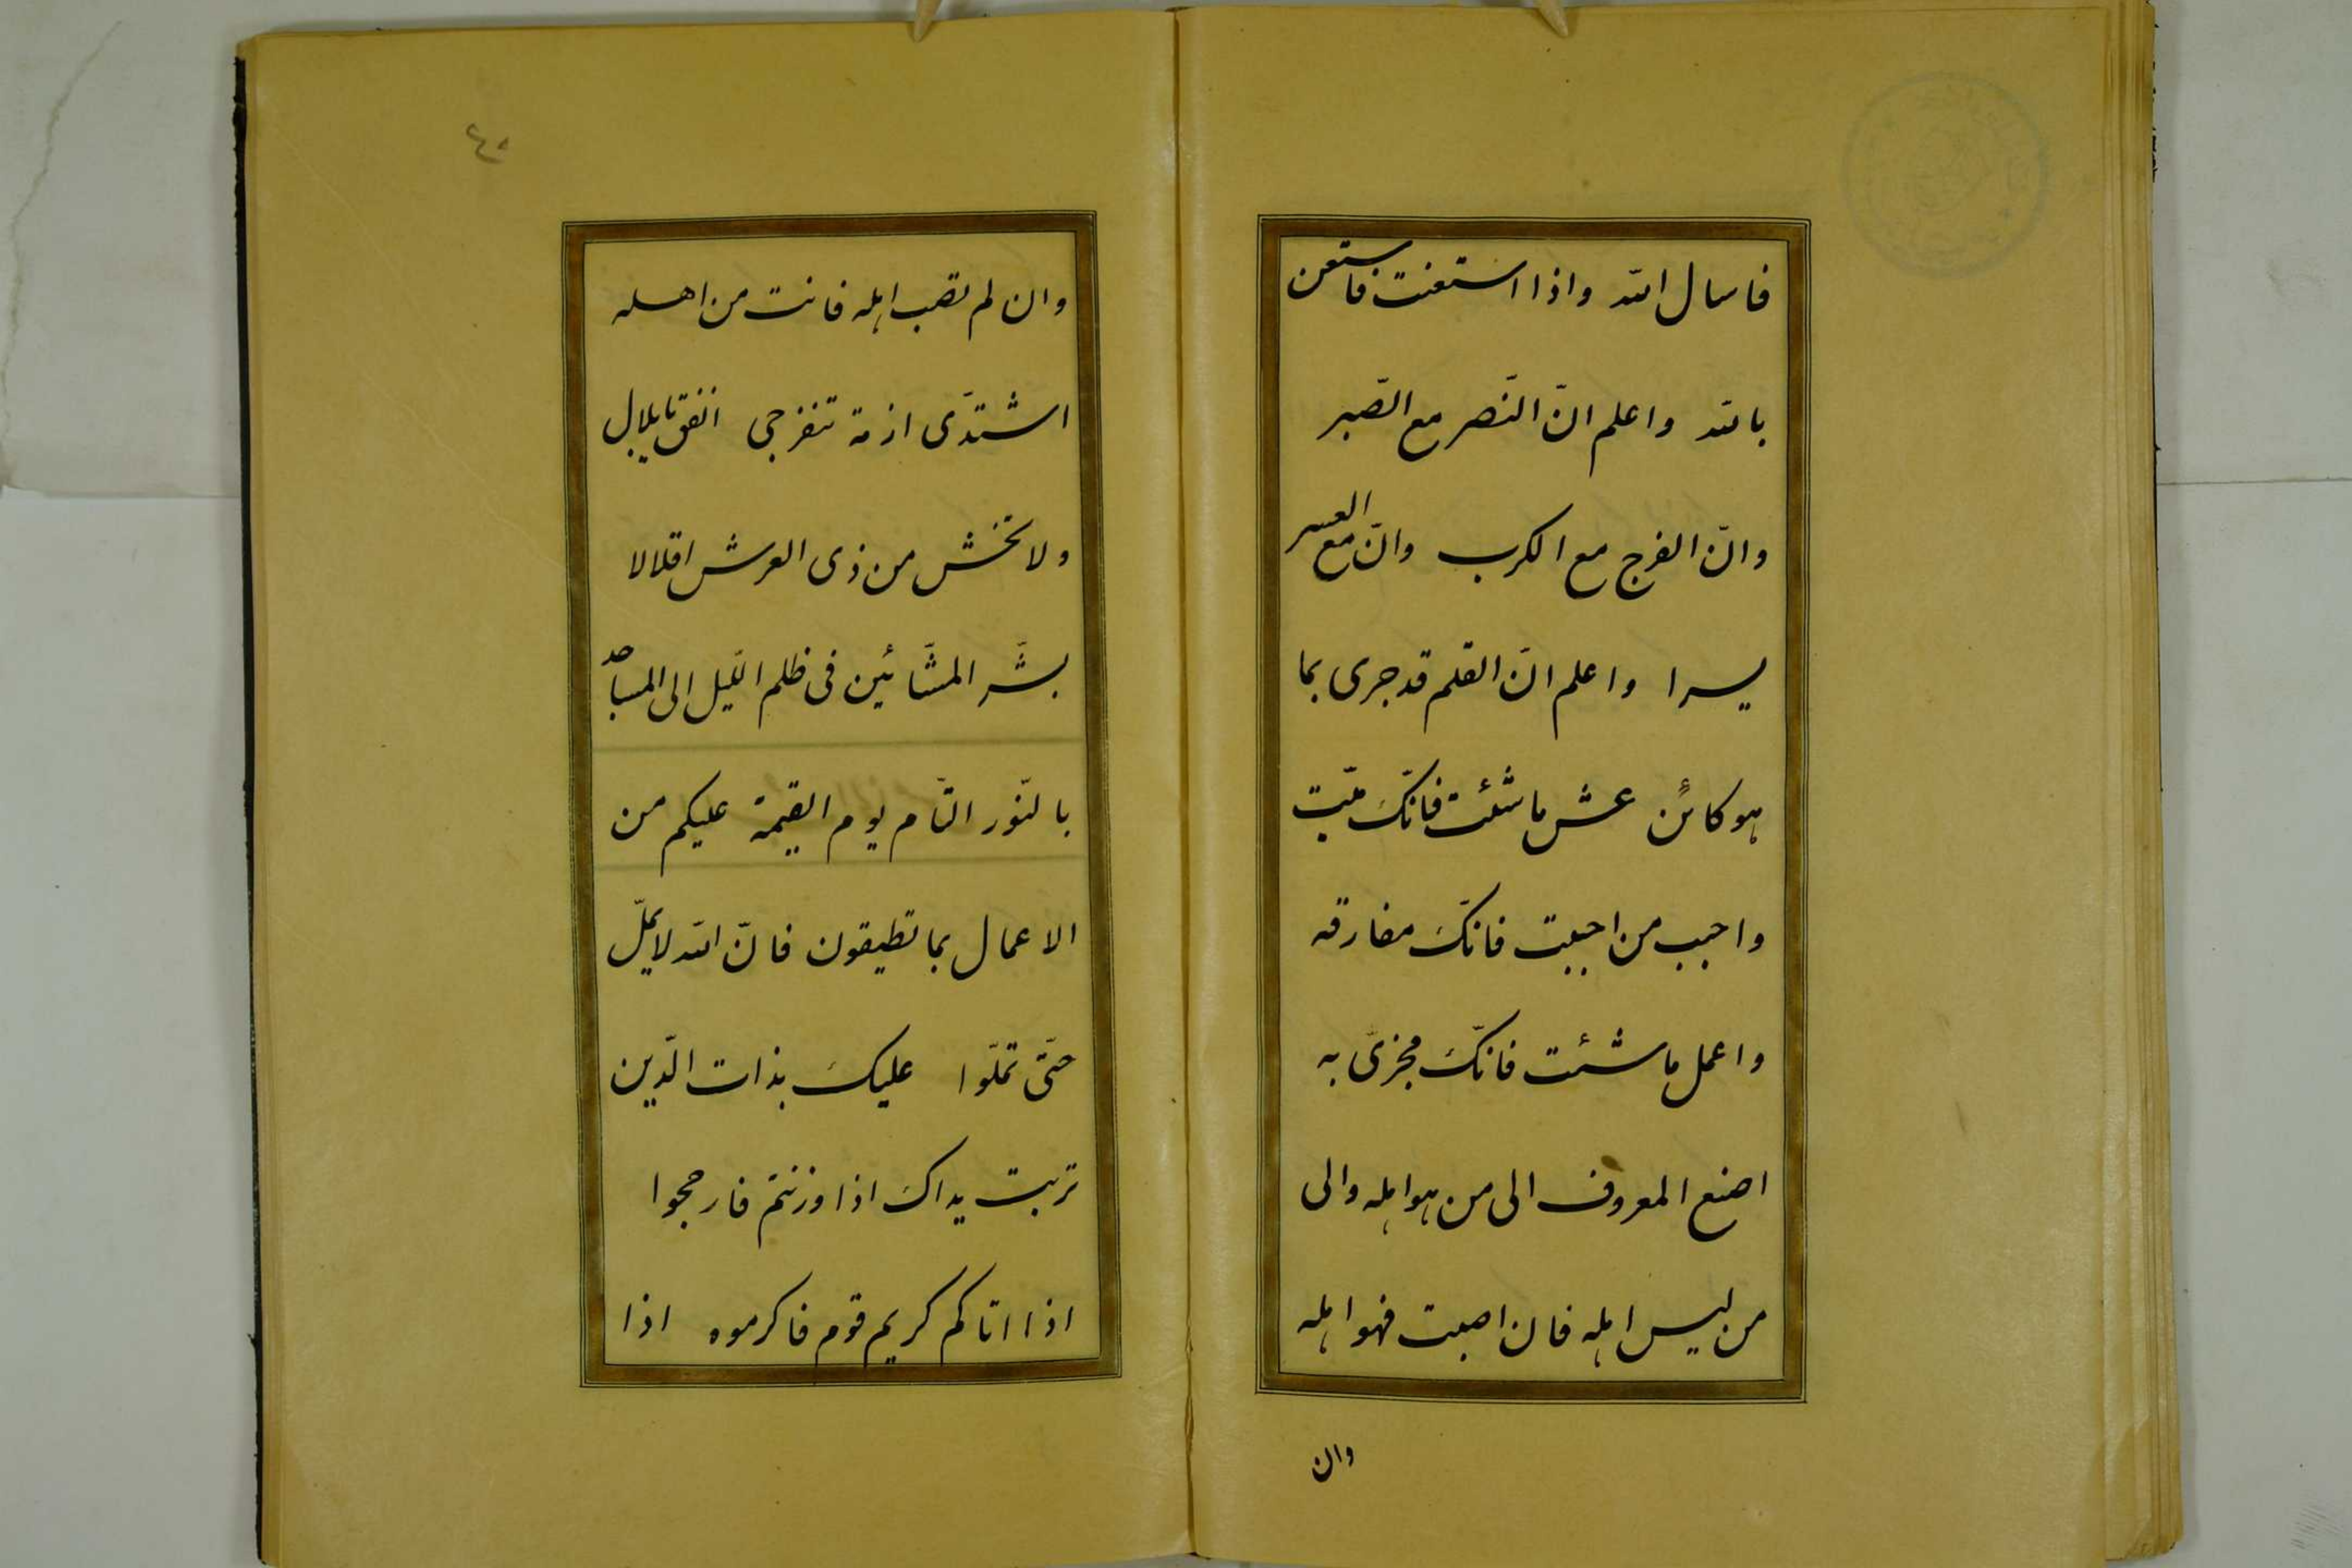 فاسال الله واذا استعنت فاستعن
بالله واعلم انّ النّصر مع الصّبر
وانّ الفرج مع الكرب وانّ مع العسر
يسرا واعلم انّ القلم قد جرى بما
هو كائن عش ما شئت فانّك ميّت
واحبب من احببت فانّك مفارقه
واعمل ما شئت فانّك مجزىّ به
اصنع المعروف الى من هو اهله والى
من ليس اهله فان اصبت فهو اهله
وان
٤٠
وان لم تصب اهله فانت من اهله
اشتدّى ازمة تنفرجى انفق يا بلال
ولا تخش من ذى العرش اقلالا
بشّر المشّائين فى ظلم اللّيل الى المساجد
بالنّور التّام يوم القيمة عليكم من
الاعمال بما تطيقون فانّ الله لا يملّ
حتّى تملّوا عليك بذات الدّين
تربت يداك اذا وزنتم فارجحوا
اذا اتاكم كريم قوم فاكرموه اذا